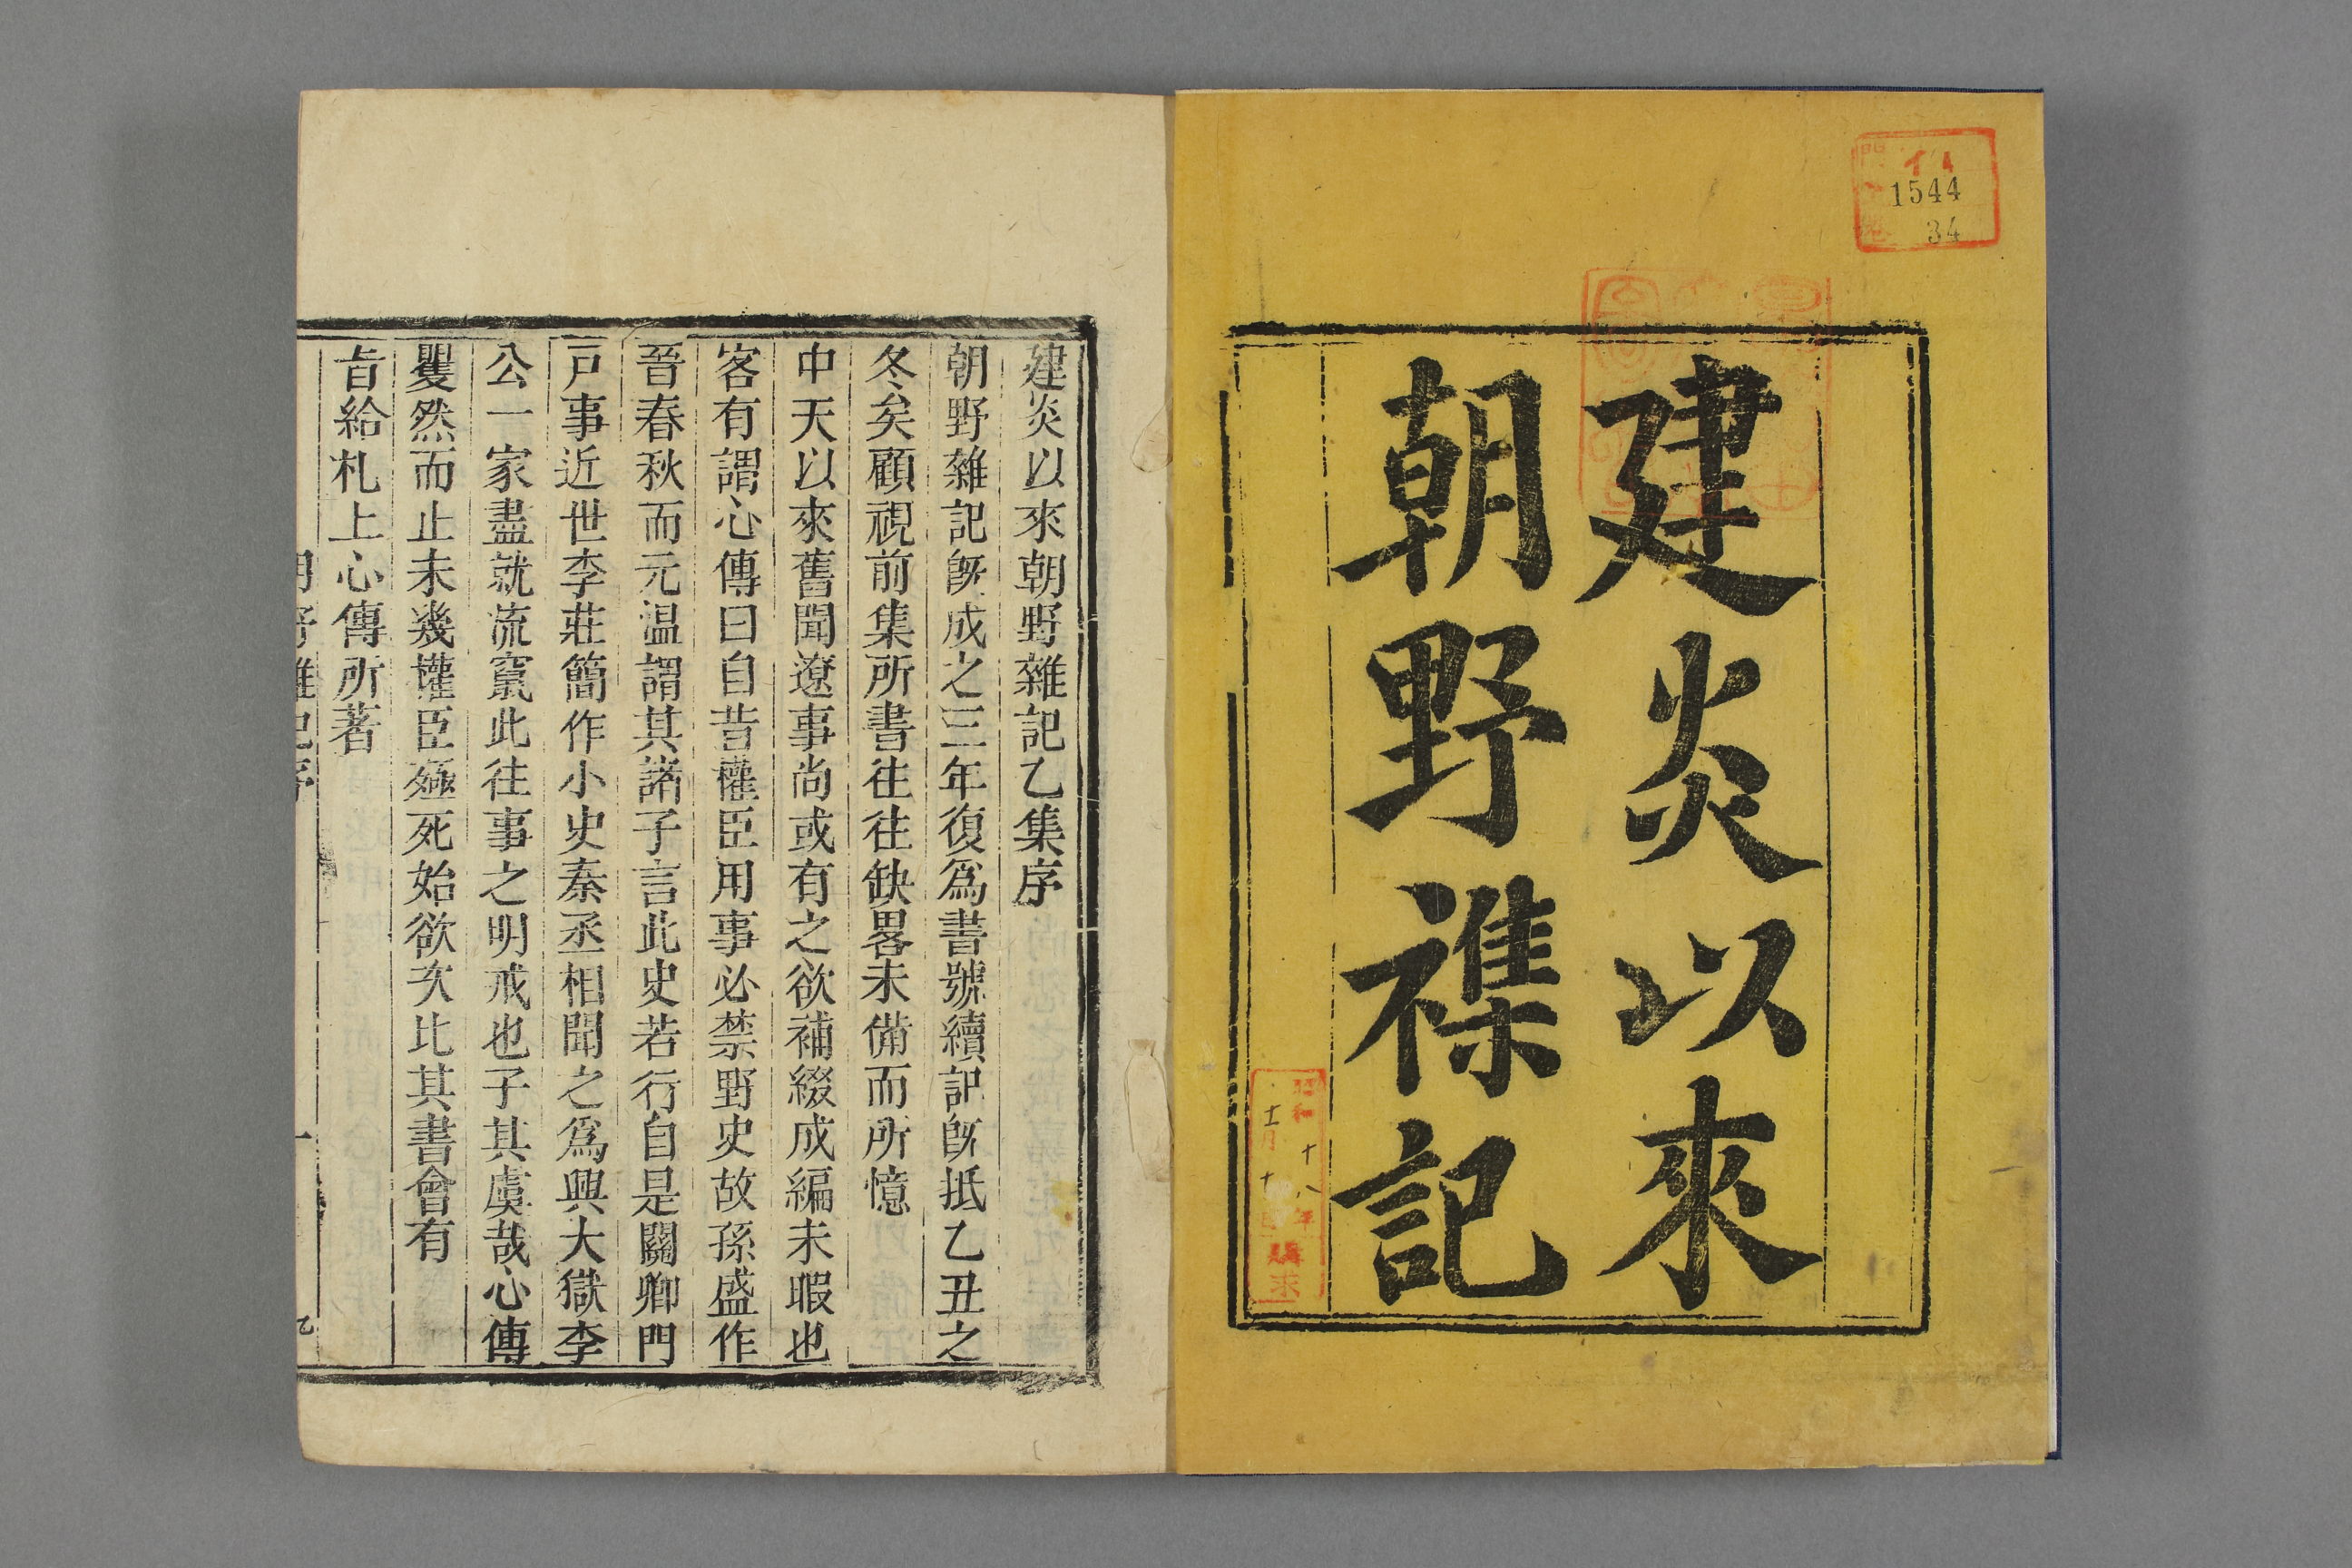 建炎以來
朝野襍記
1544
34
建炎以來朝野雜記乙集序
朝野雜記旣成之三年復爲書號續記旣抵乙丑之
冬矣顧視前集所書往往缺畧未備而所憶
中天以來舊聞遼事尚或有之欲補綴成編未暇也
客有謂心傳曰自昔權臣用事必禁野史故孫盛作
晉春秋而元温謂其諸子言此史若行自是關卿門
戸事近世李莊簡作小史秦丞相聞之爲興大獄李
公一家盡就流竄此往事之明戒也子其虞哉心傳
矍然而止未幾權臣殛死始欲次比其書會有
旨給札上心傳所著
一
乙